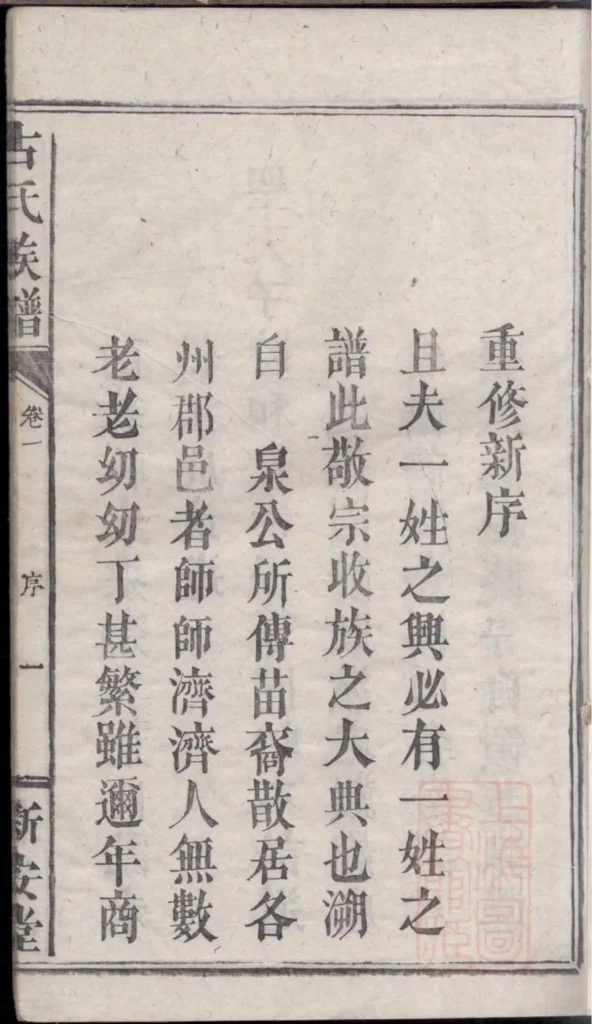 重修新序
且夫一姓之興必有一姓之
譜此敬宗收族之大典也溯
自 泉公所傳苗裔散居各
州郡邑者師師濟濟人無數
老老幼幼丁甚繁雖邇年商
古氏族譜
卷一
序
一
新安堂